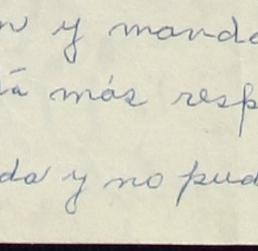 n y manda
tá más resp
da y no pud